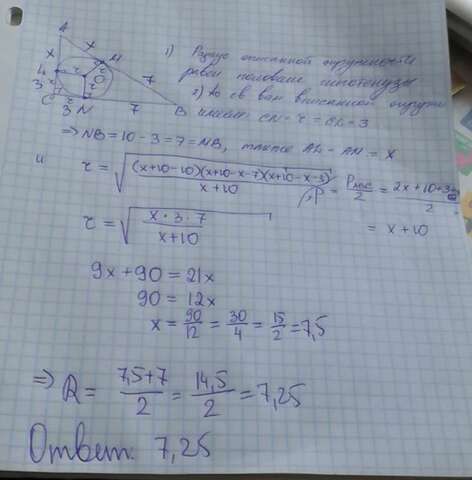 A
x
x
M
4
r
O
r
7
3
r
C
r
3
N
7
B
1) Радиус описанной окружности
равен половине гипотенузы
2) По св вам вписанной окружн
CN = r = = 3
⇒ NB = 10 - 3 = 7 = MB, также = AM = x
и
r = √((x+10-10)(x+10-x-7)(x+10-x-3)/(x+10)) , P = PABC/2 = (2x+10+3+)/2
= x + 10
r = √(x·3·7/(x+10))
9x + 90 = 21x
90 = 12x
x = 90/12 = 30/4 = 15/2 = 7,5
⇒ R = (7,5+7)/2 = 14,5/2 = 7,25
Ответ: 7,25